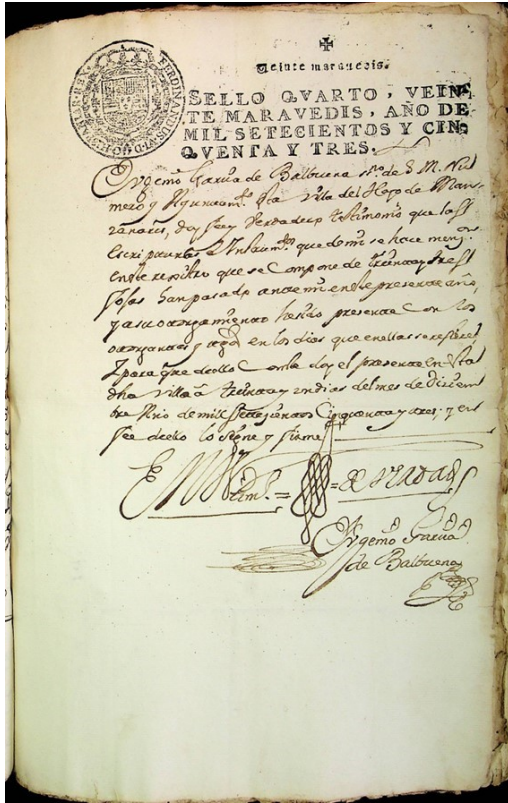 Veinte maravedis.
SELLO QVARTO, VEIN-
TE MARAVEDIS, AÑO DE
MIL SETECIENTOS Y CIN-
QVENTA Y TRES.
Eugenio Garcia de Balbuena ssno. de S. M. Nu
mero y Ayuntamto. de la villa del Hoyo de Man-
zanares, doy fee y verdadero testimonio que las
Escripturas e Instrumtos. que de mi se hace menzn.
en este rexistro que se compone de treinta y tres
fojas han pasado ante mi en este presente año,
y a su otorgamiento he sido presente con los
otorgantes y tgos. en los dias que en ellas se refiere
Y para que de ello conste doy el presente en esta
dha villa a treinta y un dias del mes de Diciem
bre Año de mil setezientos Cinquenta y tres; y en
fee de ello lo signe y firme
En testim.º = de verdad
Eugenio Garcia
de Balbuena